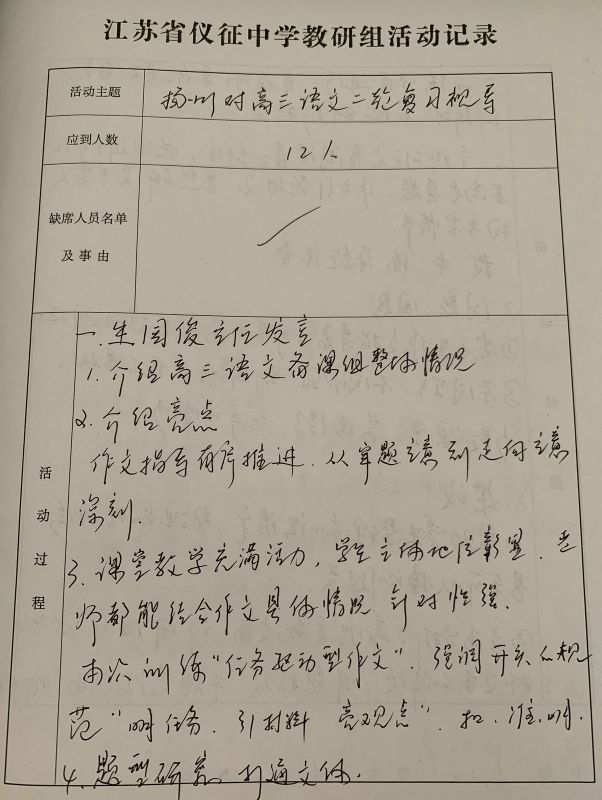 江苏省仪征中学教研组活动记录
活动主题
扬州对高三语文二轮复习视导
应到人数
12人
缺席人员名单
及事由
活动过程
一.生国俊主任发言
1.介绍高三语文备课组整体情况
2.介绍亮点
作文指导有序推进.从审题立意到走向立意
深刻.
3.课堂教学充满活力,学生主体地位彰显.老
师都能结合作文具体情况 针对性强.
本次训练“任务驱动型作文”.强调开头的规
范“明任务.引材料 亮观点”.扣.准.明.
4.题型研究 打通文体.